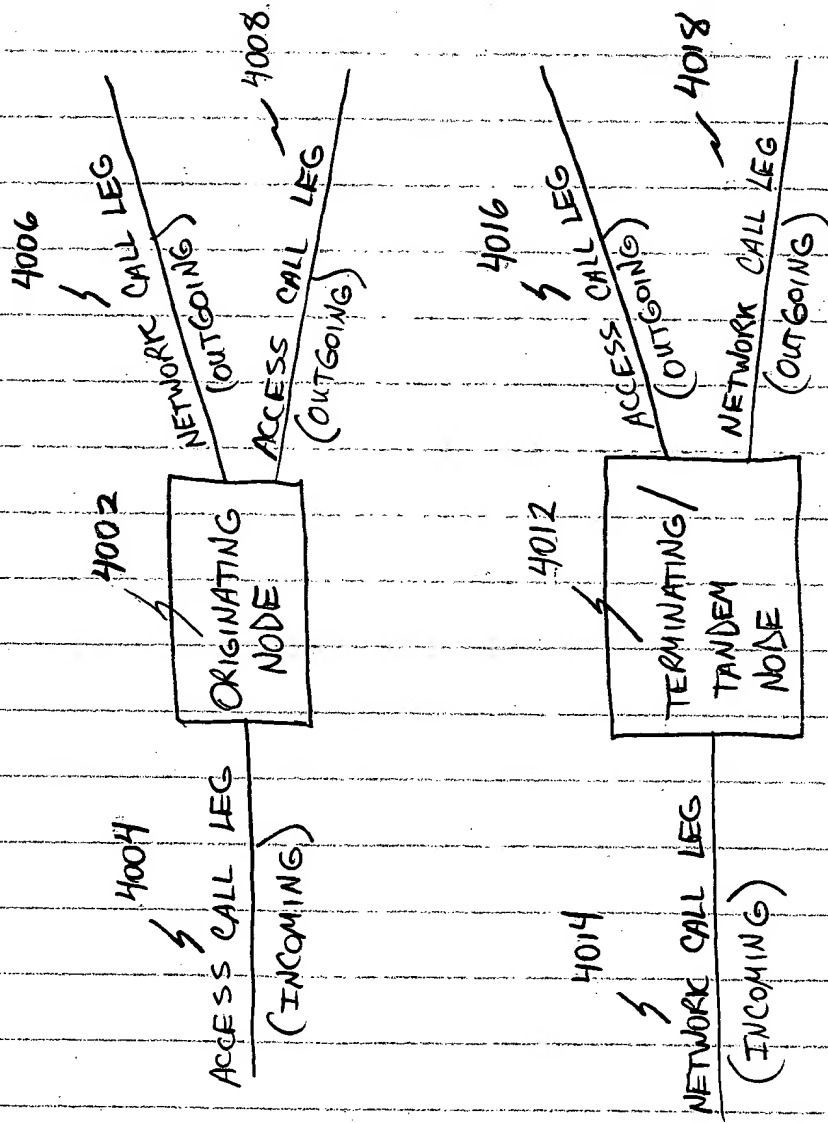 4004
ACCESS CALL LEG
(INCOMING)
4002
ORIGINATING
NODE
4006
NETWORK CALL LEG
(OUTGOING)
4008
ACCESS CALL LEG
(OUTGOING)
4014
NETWORK CALL LEG
(INCOMING)
4012
TERMINATING/
TANDEM
NODE
4016
ACCESS CALL LEG
(OUTGOING)
4018
NETWORK CALL LEG
(OUTGOING)